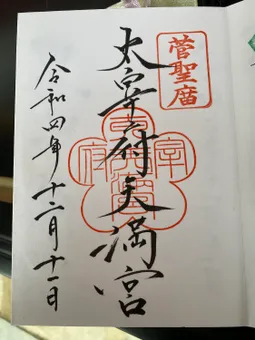 菅聖庿
太宰府天満宮
令和四年十二月十一日